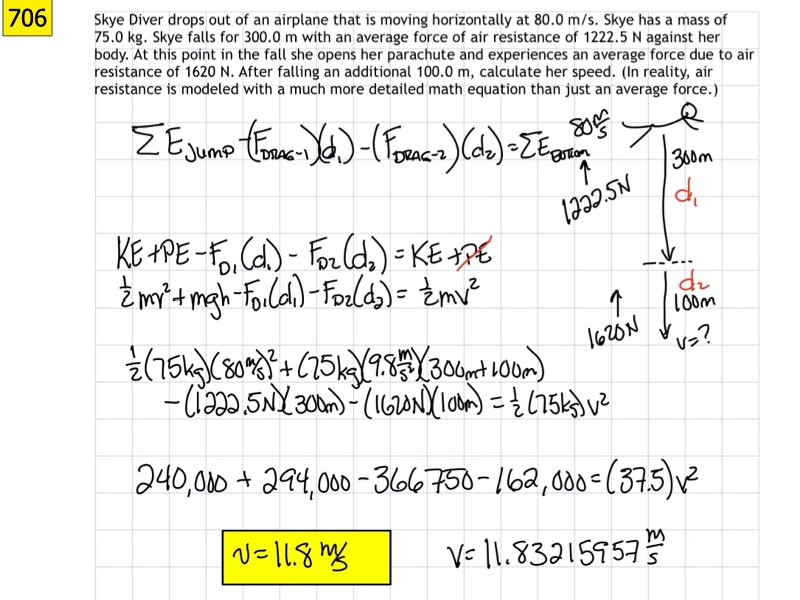 706
Skye Diver drops out of an airplane that is moving horizontally at 80.0 m/s. Skye has a mass of
75.0 kg. Skye falls for 300.0 m with an average force of air resistance of 1222.5 N against her
body. At this point in the fall she opens her parachute and experiences an average force due to air
resistance of 1620 N. After falling an additional 100.0 m, calculate her speed. (In reality, air
resistance is modeled with a much more detailed math equation than just an average force.)
ΣE_JUMP - (F_DRAG-1)(d₁) - (F_DRAG-2)(d₂) = ΣE_BOTTOM
80 m/s
300m
d₁
1222.5N
d₂
100m
1620N
v=?
KE+PE-F_D1(d₁) - F_D2(d₂) = KE+PE
½mv²+mgh-F_D1(d₁)-F_D2(d₂) = ½mv²
½(75kg)(80 m/s)²+(75kg)(9.8 m/s²)(300m+100m)
-(1222.5N)(300m)-(1620N)(100m) = ½(75kg)v²
240,000 + 294,000 - 366750 - 162,000 = (37.5)v²
v=11.8 m/s
v=11.83215957 m/s